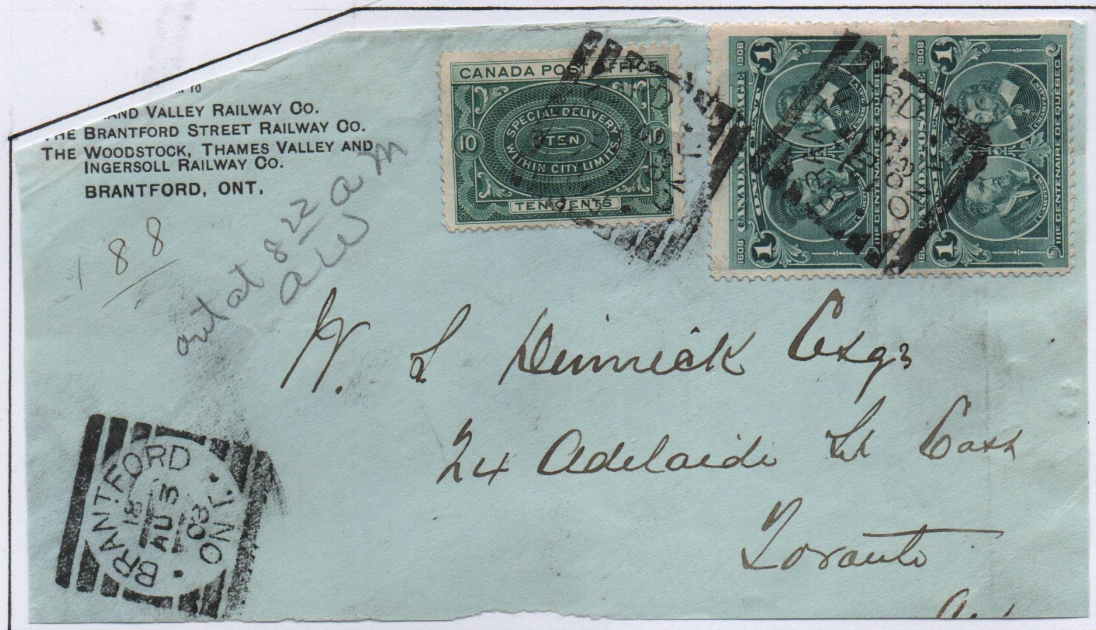 AND VALLEY RAILWAY CO.
THE BRANTFORD STREET RAILWAY CO.
THE WOODSTOCK, THAMES VALLEY AND
INGERSOLL RAILWAY CO.
BRANTFORD, ONT.
188
out at 8 22 a m
AW
CANADA POST OFFICE
SPECIAL DELIVERY
10 TEN 10
WITHIN CITY LIMITS
TEN CENTS
1608 1908
1 1
IIIE CENTENAIRE DE QUÉBEC
1608
1 1
W. L Dinnick Esq
24 Adelaide St East
Toronto
BRANTFORD ONT.
18
AU 3
08